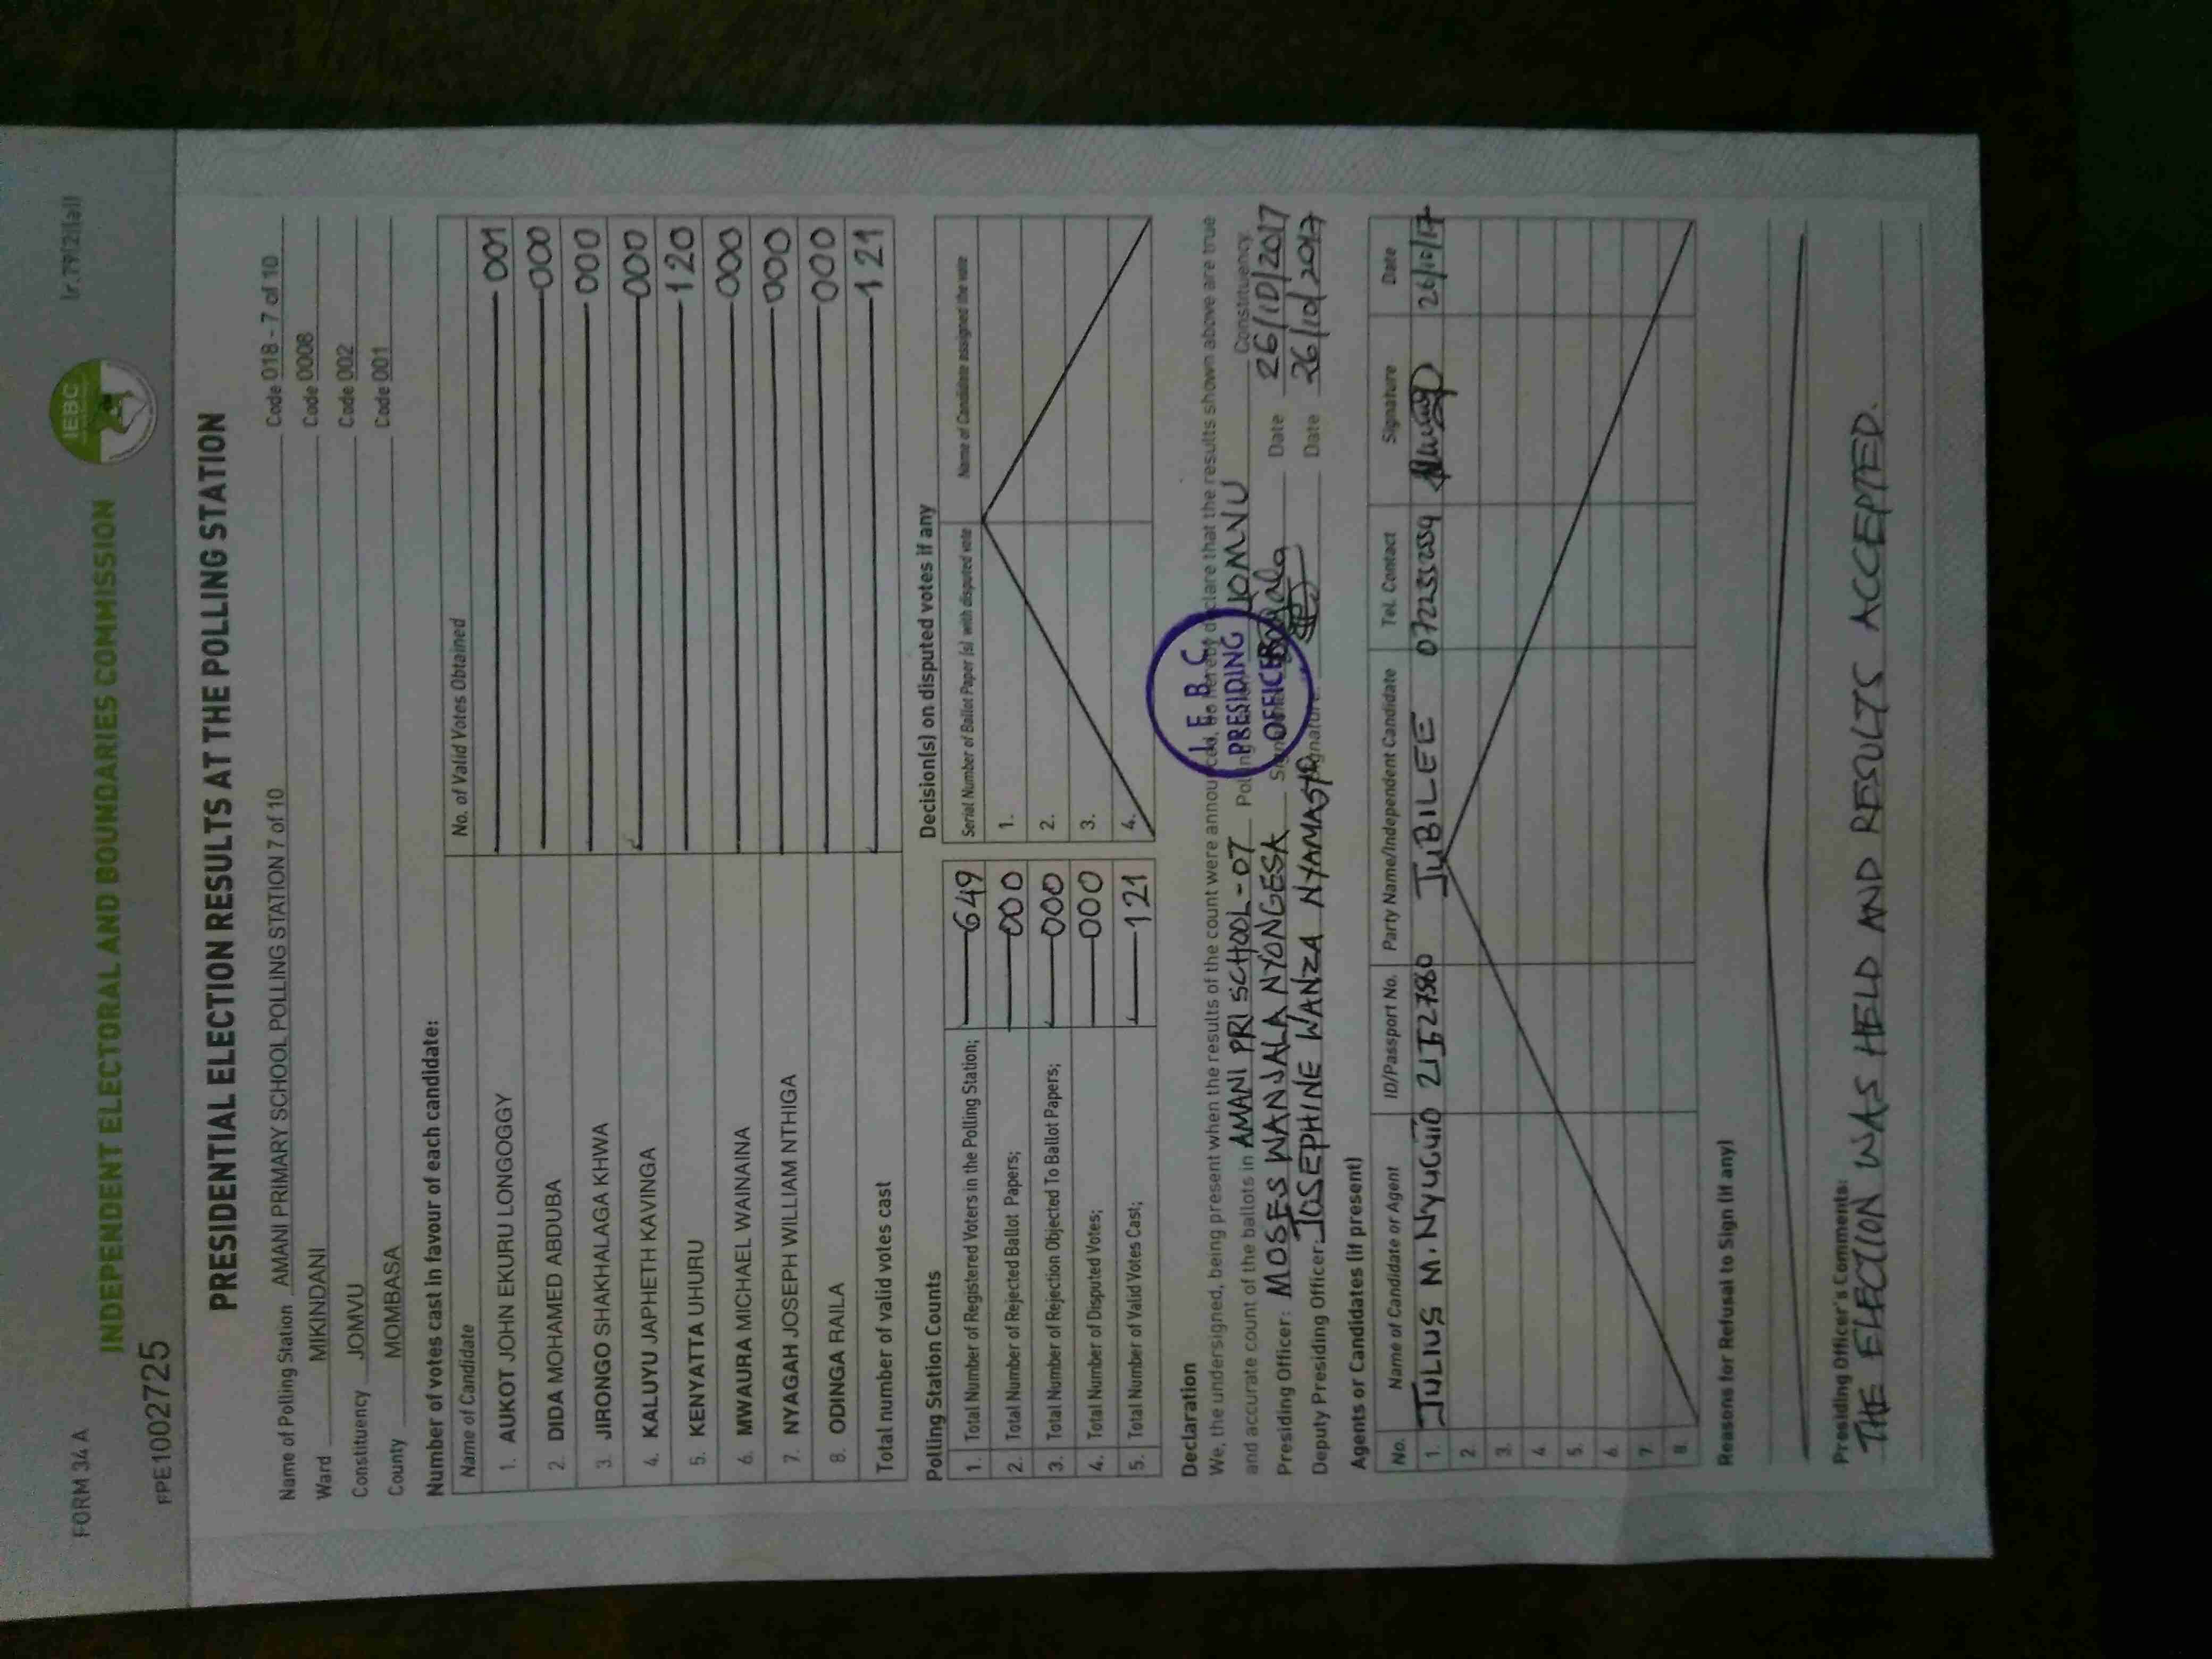 FORM 34 A
(r.79(2)(a))
IEBC
INDEPENDENT ELECTORAL AND BOUNDARIES COMMISSION
PPE1002725
PRESIDENTIAL ELECTION RESULTS AT THE POLLING STATION
Name of Polling Station AMANI PRIMARY SCHOOL POLLING STATION 7 of 10 Code 018 - 7 of 10
Ward MIKINDANI Code 0008
Constituency JOMVU Code 002
County MOMBASA Code 001
Number of votes cast in favour of each candidate:
Name of Candidate No. of Valid Votes Obtained
1. AUKOT JOHN EKURU LONGOGGY 001
2. DIDA MOHAMED ABDUBA 000
3. JIRONGO SHAKHALAGA KHWA 000
4. KALUYU JAPHETH KAVINGA 000
5. KENYATTA UHURU 120
6. MWAURA MICHAEL WAINAINA 000
7. NYAGAH JOSEPH WILLIAM NTHIGA 000
8. ODINGA RAILA 000
Total number of valid votes cast 121
Polling Station Counts
1. Total Number of Registered Voters in the Polling Station; 649
2. Total Number of Rejected Ballot Papers; 000
3. Total Number of Rejection Objected To Ballot Papers; 000
4. Total Number of Disputed Votes; 000
5. Total Number of Valid Votes Cast; 121
Decision(s) on disputed votes if any
Serial Number of Ballot Paper (s) with disputed vote Name of Candidate assigned the vote
1.
2.
3.
4.
Declaration
We, the undersigned, being present when the results of the count were announced, do hereby declare that the results shown above are true
and accurate count of the ballots in AMANI PRI SCHOOL-07 JOMVU Constituency.
Presiding Officer: MOSES WANJALA NYONGESA Date 26/10/2017
Deputy Presiding Officer: JOSEPHINE WANZA NYAMASYO Signature Date 26/10/2017
I.E.B.C
PRESIDING
OFFICER
Agents or Candidates (if present)
No. Name of Candidate or Agent ID/Passport No. Party Name/Independent Candidate Tel. Contact Signature Date
1. JULIUS M. JUBILEE 26/10/17
2.
3.
4.
5.
6.
7.
8.
Reasons for Refusal to Sign (if any)
Presiding Officer's Comments:
THE ELECTION WAS HELD AND RESULTS ACCEPTED.